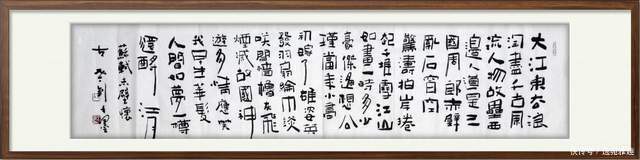 大江東去浪
淘盡千古風
流人物故壘西
邊人道是三
國周郎赤壁
亂石穿空
驚濤拍岸捲
起千堆雪江山
如畫一時多少
豪傑遥想公
瑾當年小喬
初嫁了雄姿英
發羽扇綸巾淡
咲間檣櫓灰飛
煙滅故國神
遊多情應笑
我早生華髮
人間如夢一樽
還酹江月
蘇軾赤壁懷
古
快传号